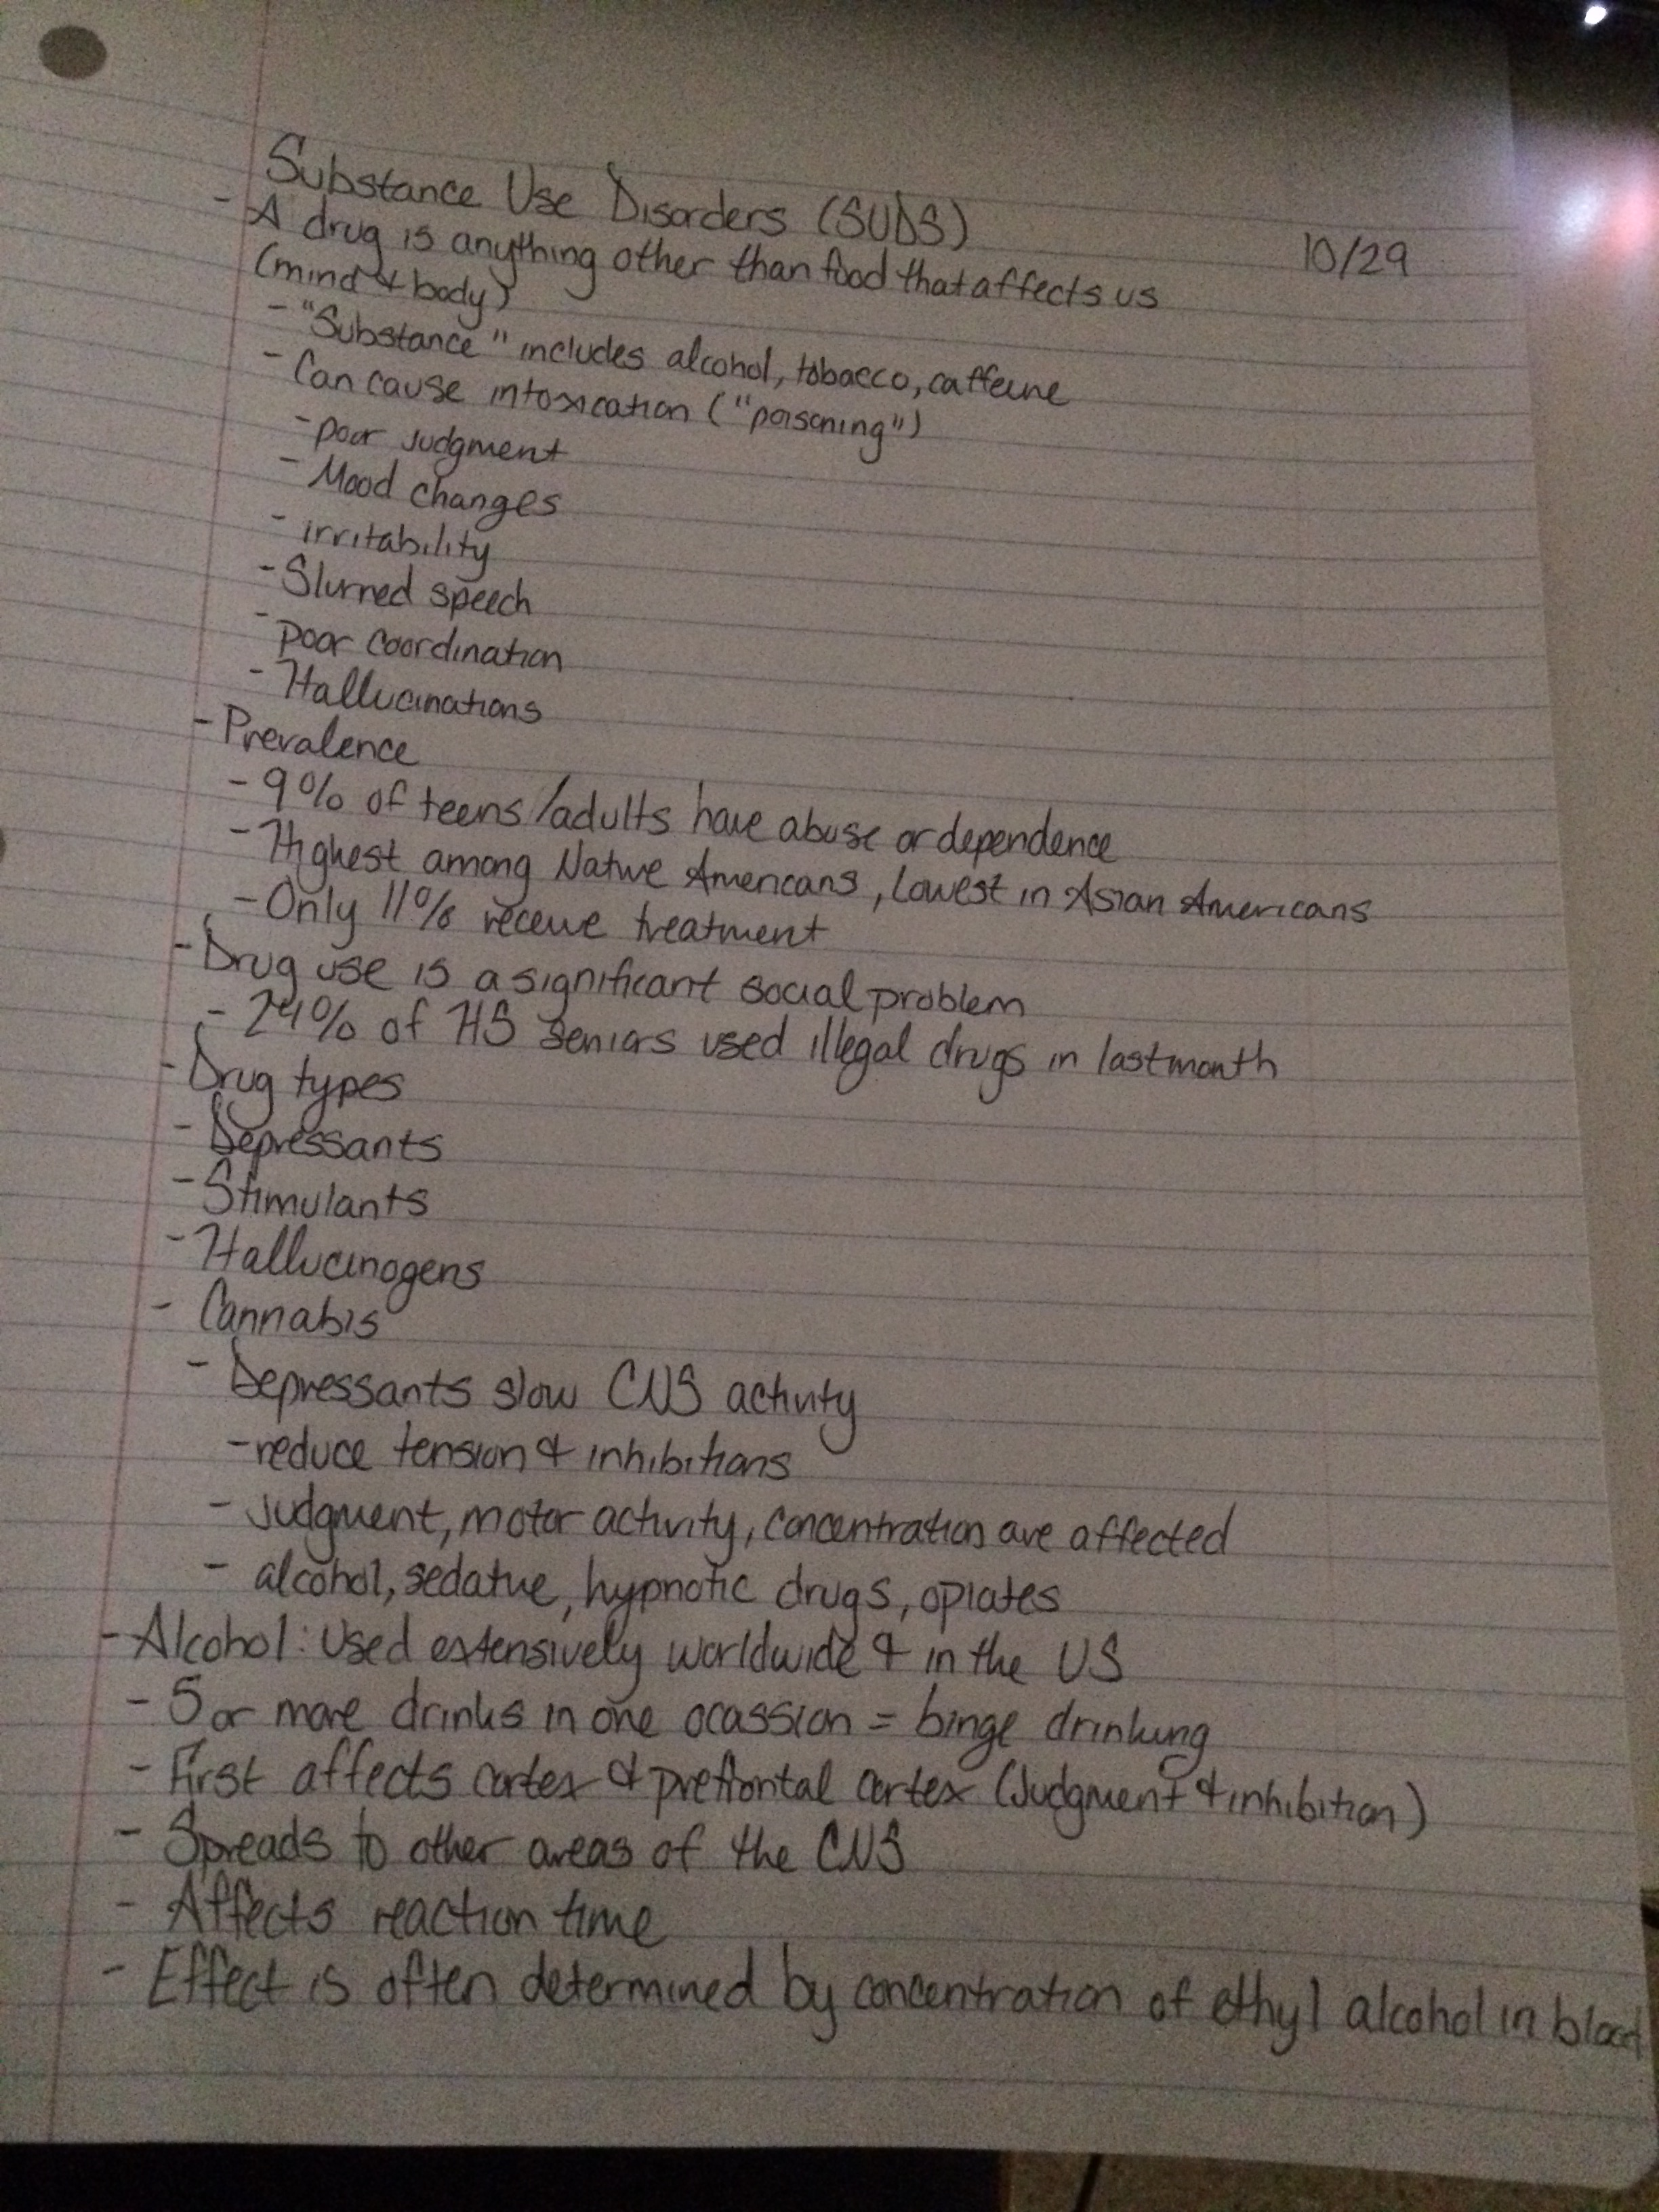 Substance Use Disorders (SUDS)
10/29
- A drug is anything other than food that affects us
(mind & body)
- "Substance" includes alcohol, tobacco, caffeine
- Can cause intoxication ("poisoning")
- poor judgment
- Mood changes
- irritability
- Slurred speech
- poor coordination
- Hallucinations
- Prevalence
- 9% of teens/adults have abuse or dependence
- Highest among Native Americans, lowest in Asian Americans
- Only 11% receive treatment
- Drug use is a significant social problem
- 24% of HS seniors used illegal drugs in last month
- Drug types
- Depressants
- Stimulants
- Hallucinogens
- Cannabis
- Depressants slow CNS activity
- reduce tension & inhibitions
- judgment, motor activity, concentration are affected
- alcohol, sedative, hypnotic drugs, opiates
- Alcohol: Used extensively worldwide & in the US
- 5 or more drinks in one ocassion = binge drinking
- First affects cortex & prefrontal cortex (Judgment & inhibition)
- Spreads to other areas of the CNS
- Affects reaction time
- Effect is often determined by concentration of ethyl alcohol in blood